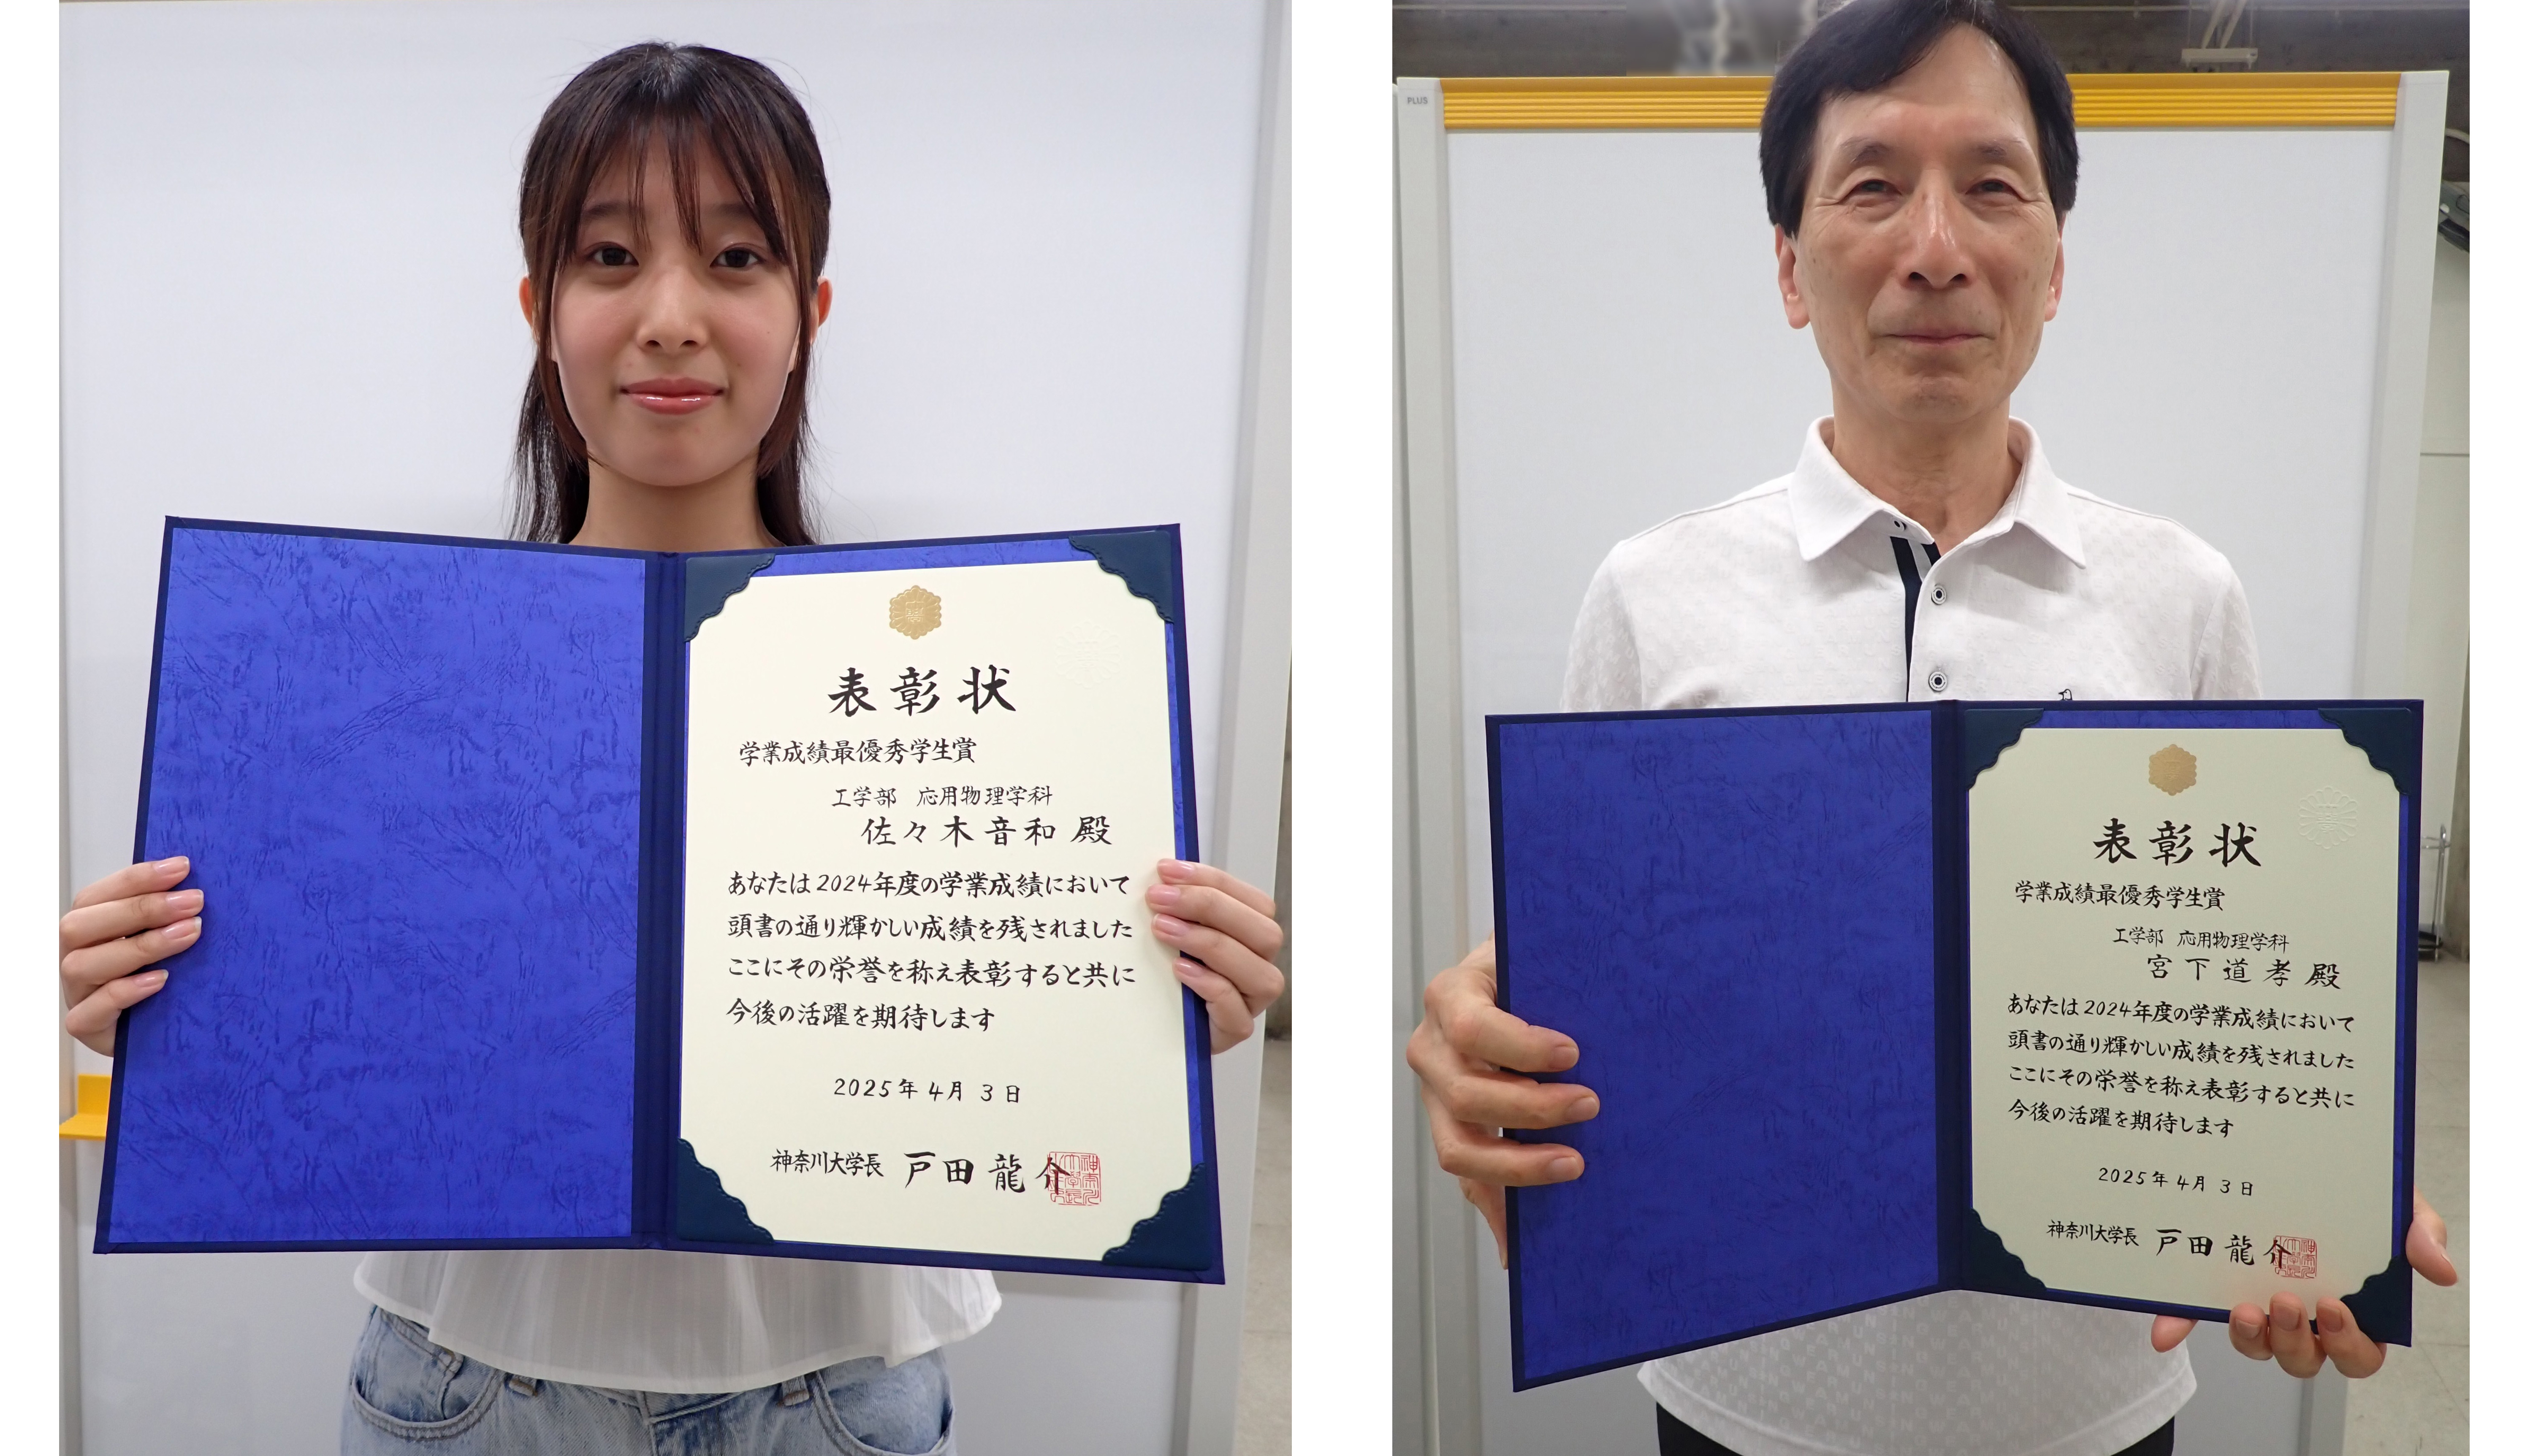 表彰状
学業成績最優秀学生賞
工学部 応用物理学科
佐々木音和 殿
あなたは2024年度の学業成績において
頭書の通り輝かしい成績を残されました
ここにその栄誉を称え表彰すると共に
今後の活躍を期待します
2025年4月3日
神奈川大学長 戸田龍介
PLUS
表彰状
学業成績最優秀学生賞
工学部 応用物理学科
宮下道孝 殿
あなたは2024年度の学業成績において
頭書の通り輝かしい成績を残されました
ここにその栄誉を称え表彰すると共に
今後の活躍を期待します
2025年4月3日
神奈川大学長 戸田龍介